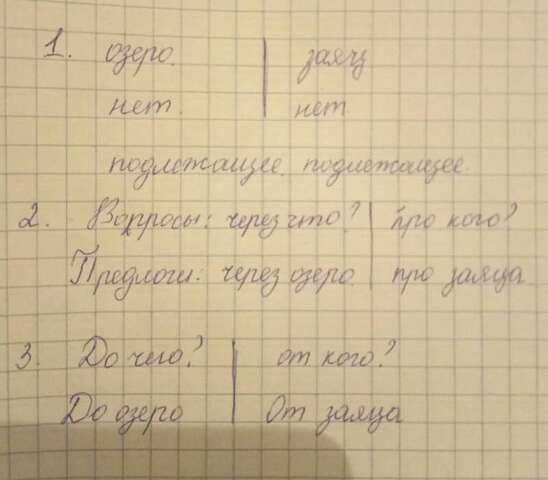 1. озеро. | заяц
нет. | нет
подлежащее. подлежащее.
2. Вопросы: через что? | про кого?
Предлоги: через озеро. | про заяца
3. До чего? | от кого?
До озеро | От заяца